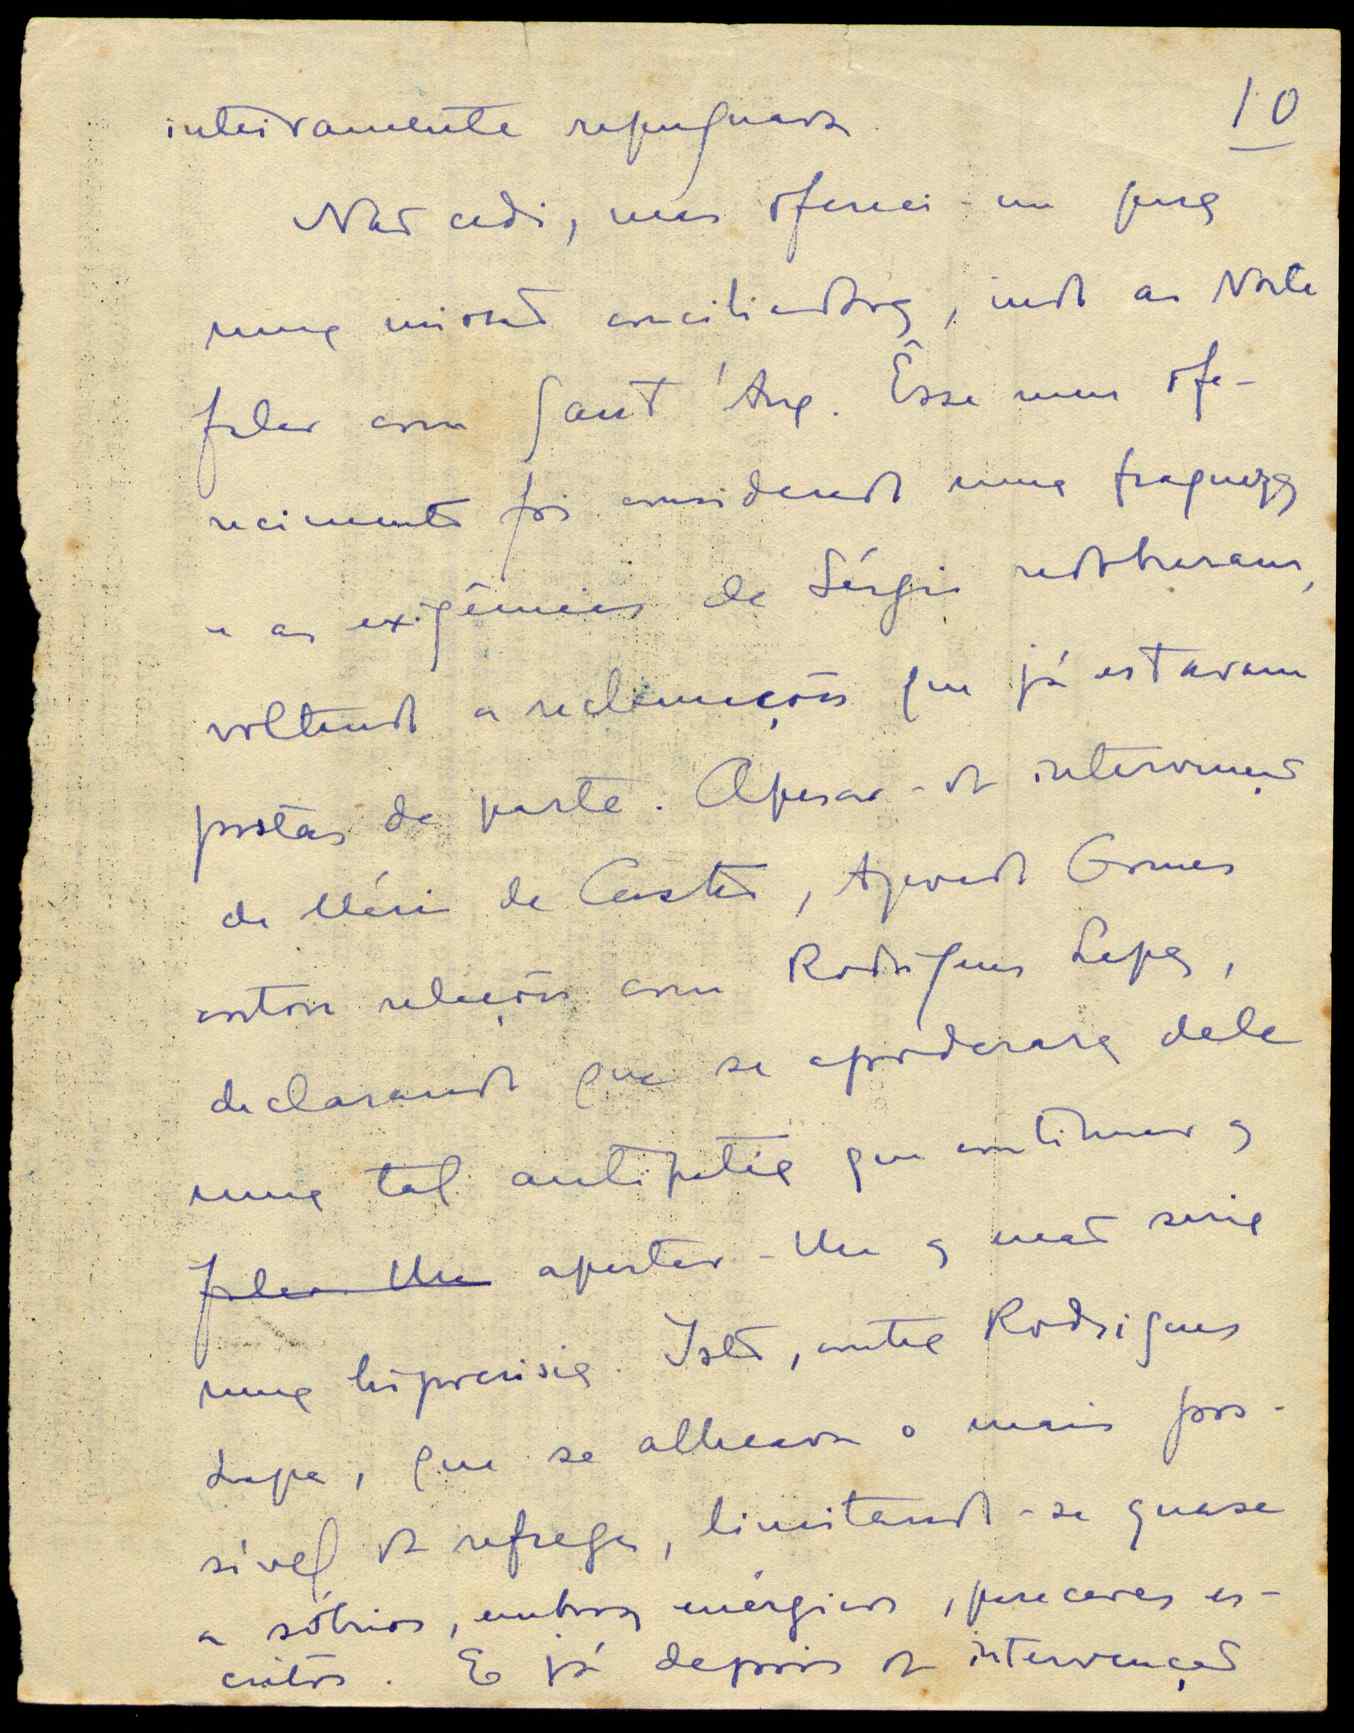 10
inteiramente repugnava.
Não cedi, mas ofereci-me para
uma missão conciliadora, indo ao Norte
falar com Sant'Ana. Êsse meu ofe-
recimento foi considerado uma fraqueza
e as exigências de Sérgio redobraram,
voltando a reclamações que já estavam
postas de parte. Apesar da intervenção
de Mário de Castro, Azevedo Gomes
cortou relações com Rodrigues Lapa,
declarando que se apoderara dele
uma tal antipatia que continuar a
falar-lhe apertar-lhe a mão seria
uma hipocrisia. Isto, contra Rodrigues
Lapa, que se alheava o mais pos-
sível da refrega, limitando-se quase
a sóbrios, embora enérgicos, pareceres es-
critos. E já depois da intervenção